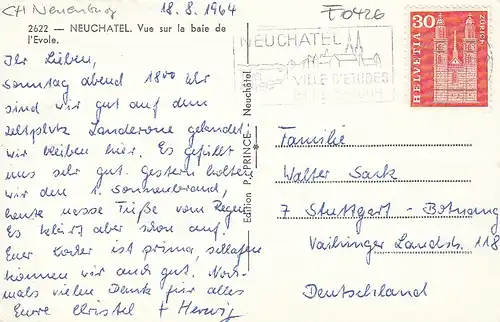 CH Neuenburg 18.8.1964 F0426
2622 — NEUCHATEL. Vue sur la baie de
l'Evole.
NEUCHATEL
VILLE D'ETUDES
30
HELVETIA
ZÜRICH
Ihr Lieben,
Sonntag abend 1800 Uhr
sind wir gut auf dem
Zeltplatz Landeron gelandet
wir bleiben hier. Es gefällt
uns sehr gut. Gestern holten
wir den 1. Sonnenbrand,
heute nasse Füße vom Regen
Es klärt aber schon auf.
Euer Koder ist prima, schlafen
können wir auch gut. Noch-
mals vielen Dank für alles
Eure Christel + Herwig
Edition P. PRINCE - Neuchâtel
Familie
Walter Sack
7 Stuttgart - Botnang
Vaihinger Landstr. 118
Deutschland